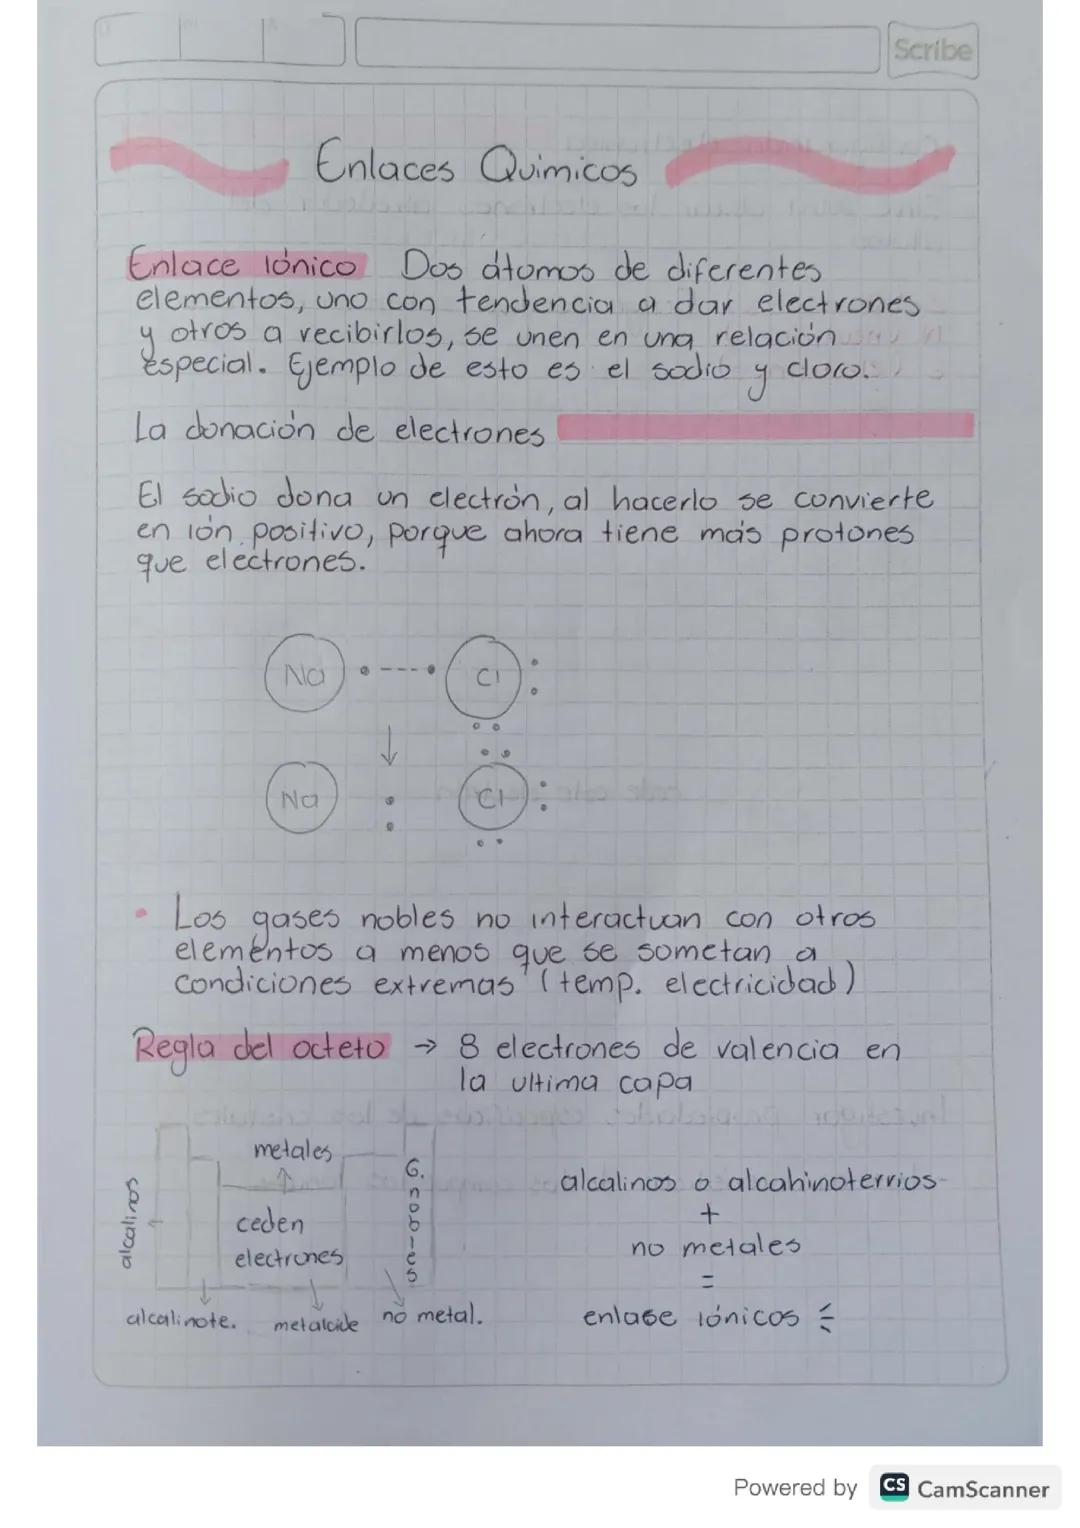 Scribe
Enlaces Quimicos
Enlace Iónico Dos átomos de diferentes
elementos, uno con tendencia a dar electrones
y otros a recibirlos, se unen en una relación
especial. Ejemplo de esto es el sodio y cloro.
La donación de electrones
El sodio dona un electrón, al hacerlo se convierte
en ión positivo, porque ahora tiene más protones
que electrones.
Na Cl
Na Cl
• Los gases nobles no interactuan con otros
elementos a menos que se sometan a
condiciones extremas (temp. electricidad)
Regla del octeto → 8 electrones de valencia en
la ultima capa
metales
G. nobles
alcalinos
ceden
electrones
alcalinote. metaloide no metal.
alcalinos o alcahinoterrios
+
no metales
=
enlase iónicos
Powered by CS CamScanner